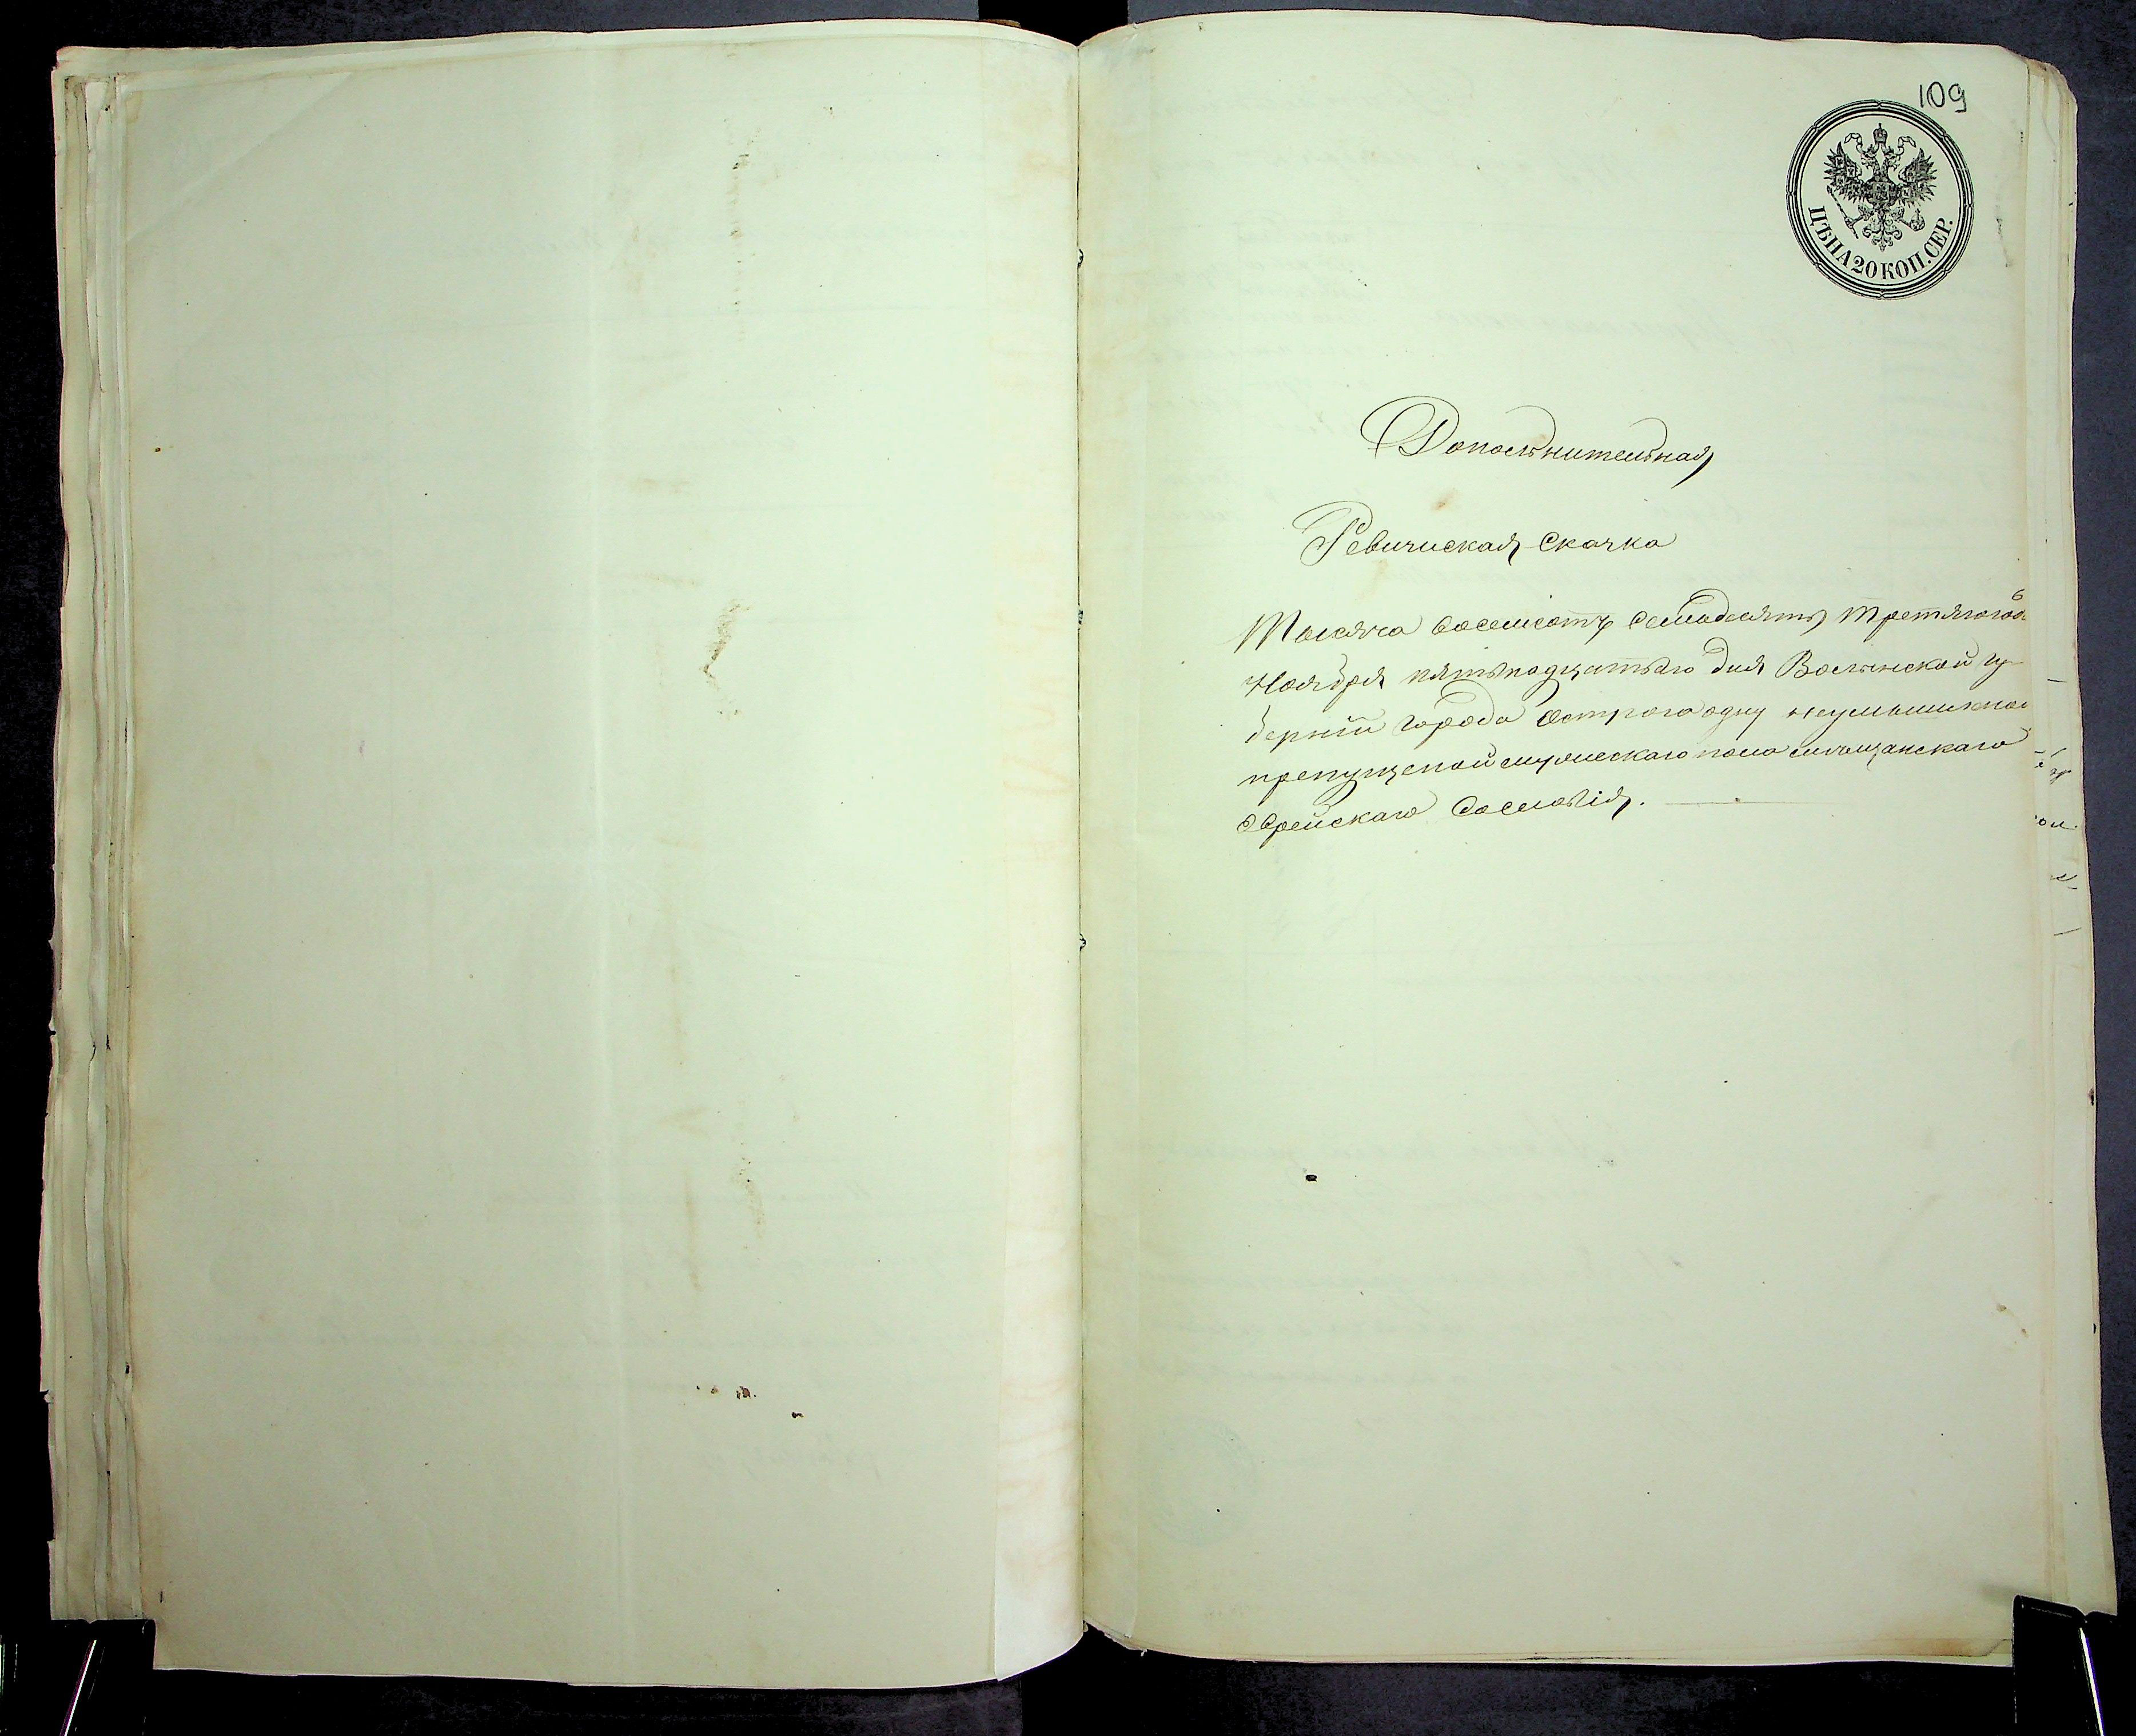 109
ЦѢНА 20 КОП. СЕР.
Дополнительная
Ревизиская Сказка
Тысяча восемсотъ семьдесятъ третягогов
Ноября пятьнадцатьаго дня Волынской гу-
берніи города Острога одну неумышлено
препущеной мужескаго пола мещанскаго
Еврейскаго Сословія.